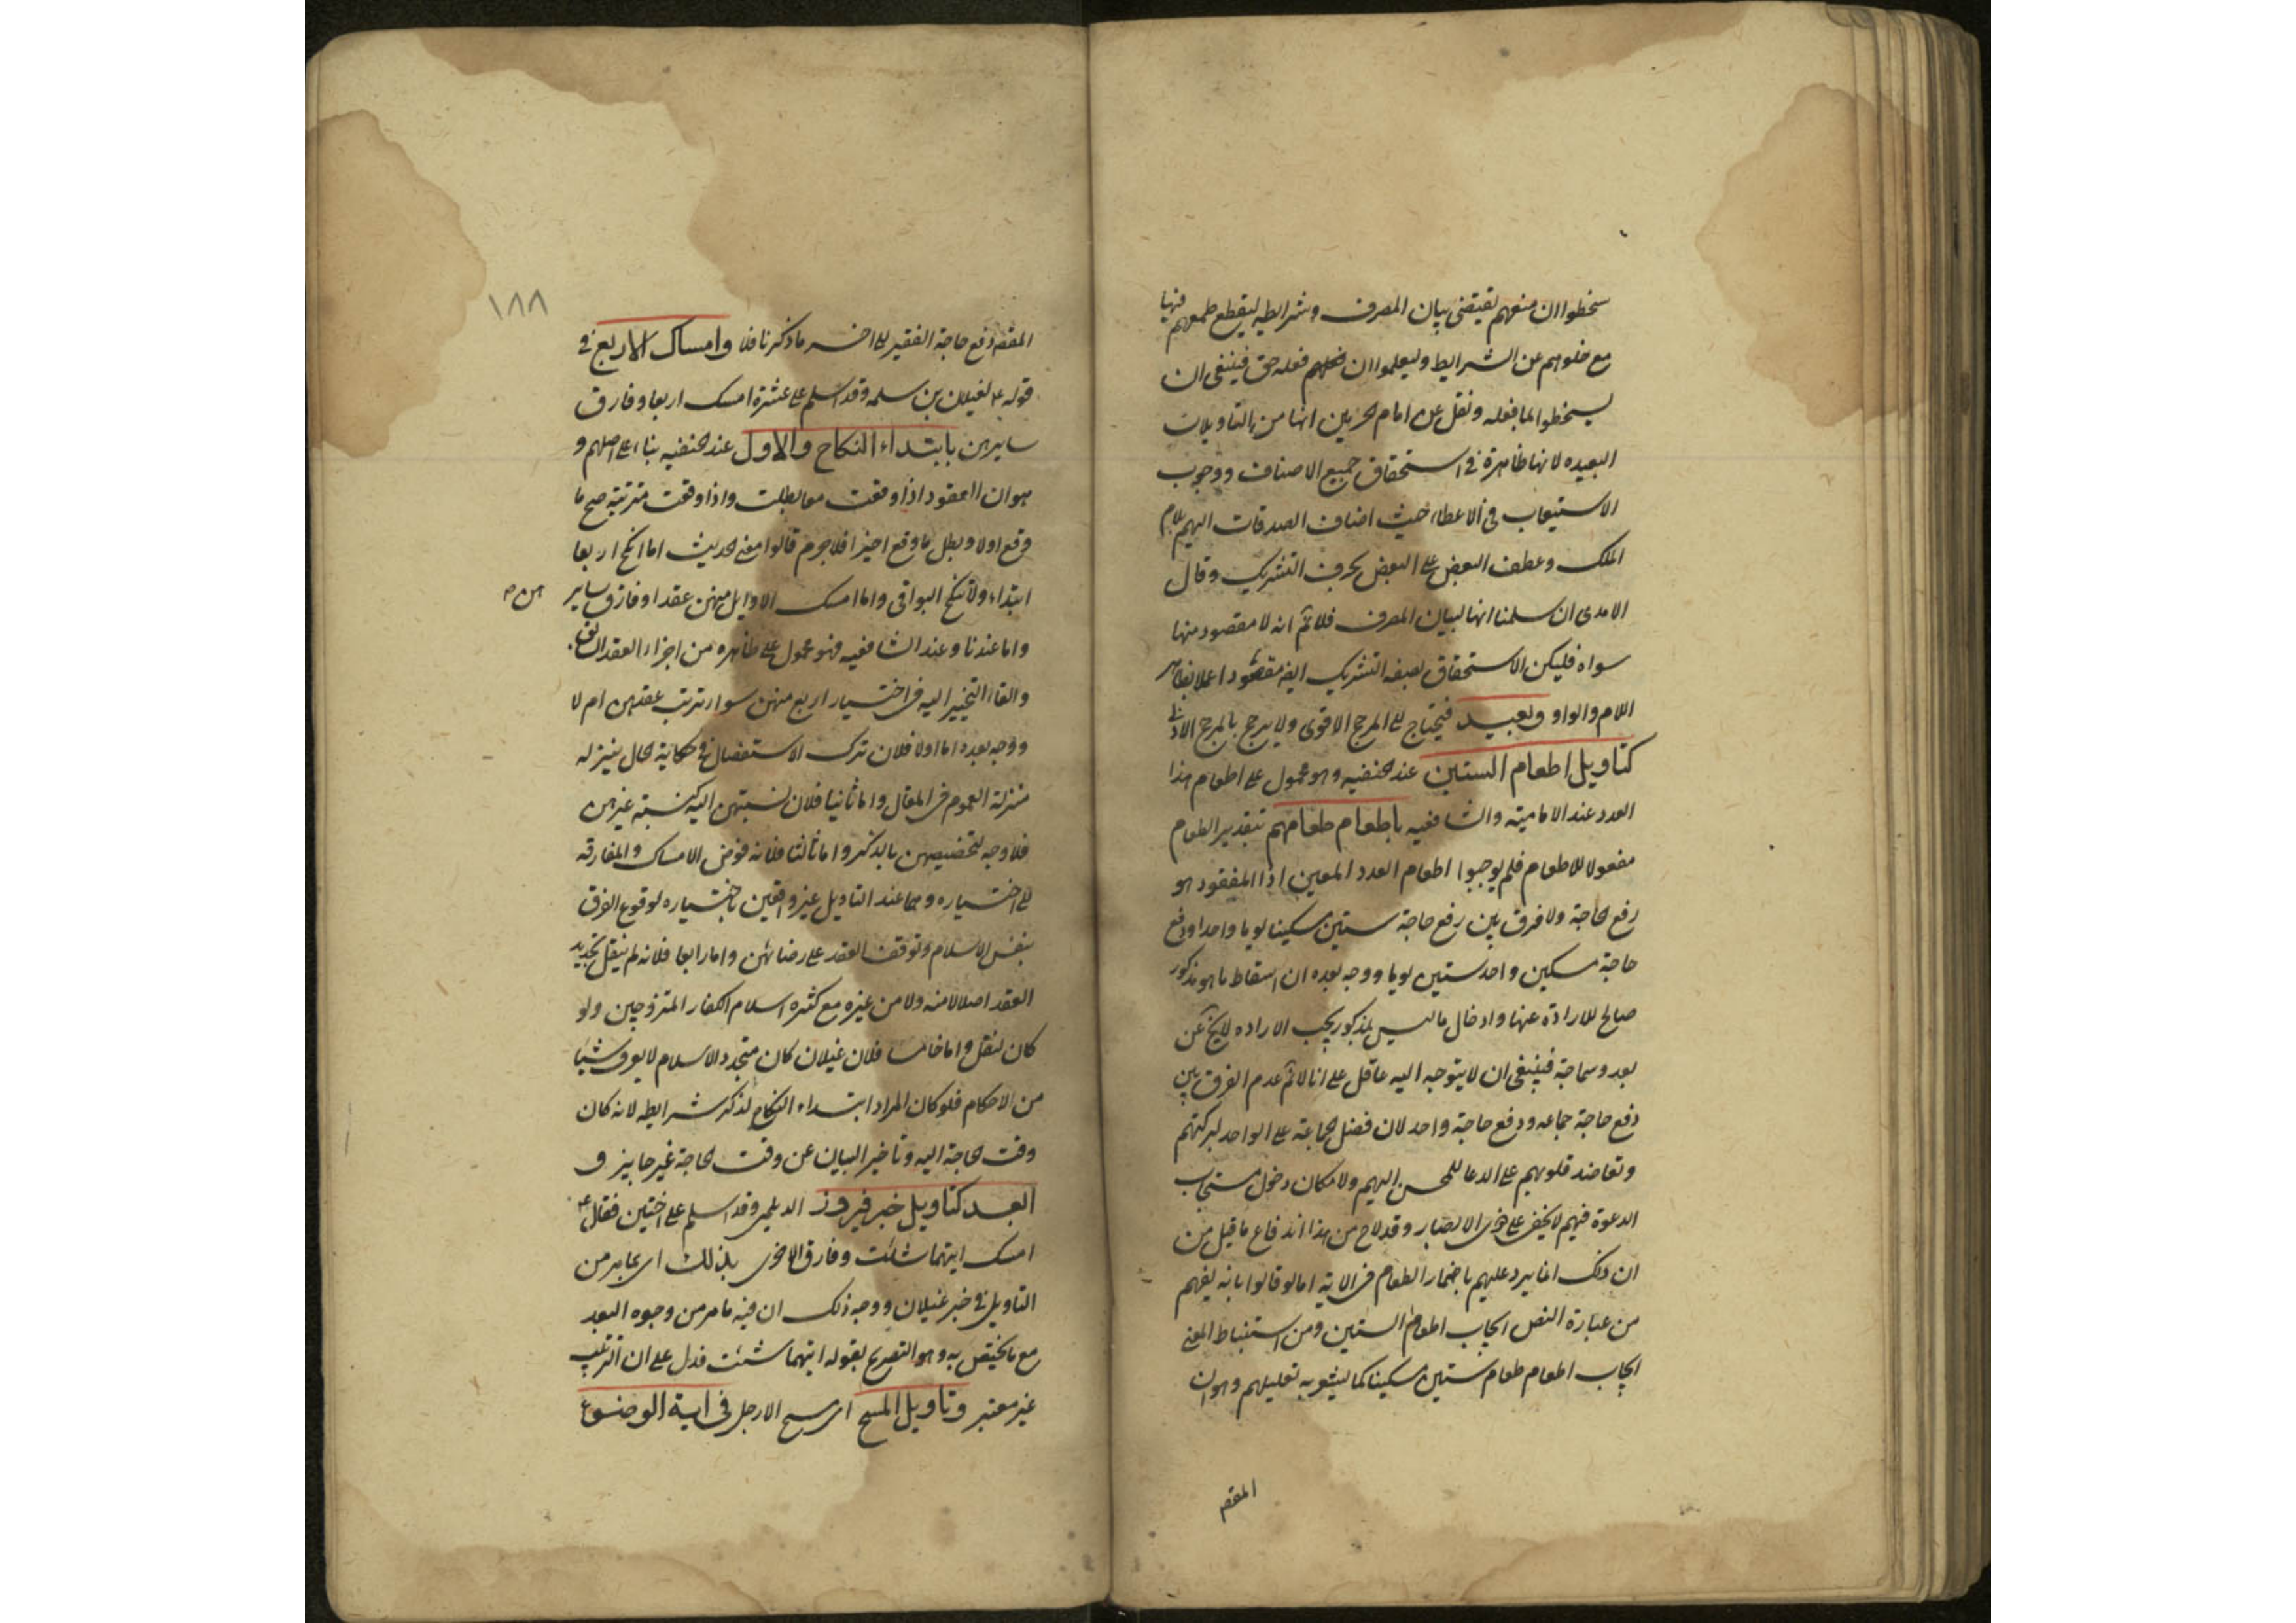 سخطوا ان منعهم يقتضى بيان المصرف وشرايطه ليقطع طمعهم فيها
مع خلوهم عن الشرايط وليعلموا ان فعله حق فينبغى ان
يسخطوا لما فعله ونقل عن امام الحرمين انها من التاويلات
البعيده لانها ظاهرة فى استحقاق جميع الاصناف ووجوب
الاستيعاب فى الاعطاء حيث اضاف الصدقات اليهم بلام
الملك وعطف البعض على البعض بحرف التشريك وقال
الامدى ان سلمنا انها لبيان المصرف فلا نم انه لا مقصود منها
سواه فليكن الاستحقاق بصفة التشريك ايض مقصودا عملا بظاهر
اللام والواو وبعيد فيحتاج الى المرجح الاقوى ولا يرجح بالمرجح الادنى
كتاويل اطعام الستين عند الحنفيه وهو محمول على اطعام هذا
العدد عند الامامية والشافعيه باطعام طعامهم بتقدير الطعام
مفعولا للاطعام فلم يوجبوا اطعام العدد المعين اذا المقصود هو
رفع الحاجة ولا فرق بين رفع حاجة ستين مسكينا يوما واحدا ودفع
حاجة مسكين واحد ستين يوما ووجه بعده ان اسقاط ما هو مذكور
صالح للارادة عنها وادخال ما ليس بمذكور بحسب الاراده لا يخ عن
بعد وسماجة فينبغى ان لا يتوجه اليه عاقل على انا لا نم عدم الفرق بين
دفع حاجة جماعه ودفع حاجة واحد لان فضل الجماعة على الواحد لبركتهم
وتعاضد قلوبهم على الدعا للمحسن اليهم ولامكان دخول مستجاب
الدعوة فيهم لا يخفى على ذوى الابصار وقد لاح من هذا اندفاع ما قيل من
ان ذلك انما يرد عليهم باضمار الطعام فى الاية اما لو قالوا بانه يفهم
من عبارة النص ايجاب اطعام الستين ومن استنباط المعنى
ايجاب اطعام طعام ستين مسكينا كما يشعر به تعليلهم وهو ان
المقصد
١٨٨
المقصد دفع حاجة الفقير الى اخر ما ذكرنا فلا وامساك الاربع فى
قوله ع لغيلان بن سلمه وقد اسلم على عشرة امسك اربعا وفارق
سايرهن بابتداء النكاح والاول عند الحنفيه بناء على اصلهم و
هو ان العقود اذا وقعت معا بطلت واذا وقعت مترتبة صح ما
وقع اولا وبطل ما وقع اخيرا فلا جرم قالوا معنى الحديث اما انكح اربعا
ابتداء ولا تنكح البواقى واما امسك الاوايل منهن عقدا وفارق ساير
هن
واما عندنا وعند الشافعيه فهو محمول على ظاهره من اجراء العقد السابق
والقاء التخيير اليه فى اختيار اربع منهن سواء ترتب عقدهن ام لا
ووجه بعده اما اولا فلان ترك الاستفصال فى حكاية الحال ينزله
منزلة العموم فى المقال واما ثانيا فلان نسبتهن اليه كنسبة غيرهن
فلا وجه لتخصيصهن بالذكر واما ثالثا فلانه فوض الامساك والمفارقه
الى اختياره وهما عند التاويل غير واقعين باختياره لوقوع الفرق
بنفس الاسلام وتوقف العقد على رضائهن واما رابعا فلانه لم ينقل تجديد
العقد اصلا لا منه ولا من غيره مع كثرة اسلام الكفار المتزوجين ولو
كان لنقل واما خامسا فلان غيلان كان متجدد الاسلام لا يعرف شيئا
من الاحكام فلو كان المراد ابتداء النكاح لذكر شرايطه لانه كان
وقت الحاجة اليه وتاخير البيان عن وقت الحاجة غير جايز و
ابعد كتاويل خبر فيروز الديلمى وقد اسلم على اختين فقال ع
امسك ايتهما شئت وفارق الاخرى بذلك اى بما مر من
التاويل فى خبر غيلان ووجه ذلك ان فيه ما مر من وجوه البعد
مع ما يختص به وهو التصريح بقوله ايتهما شئت فدل على ان الترتيب
غير معتبر وتاويل المسح اى مسح الارجل فى اية الوضوء